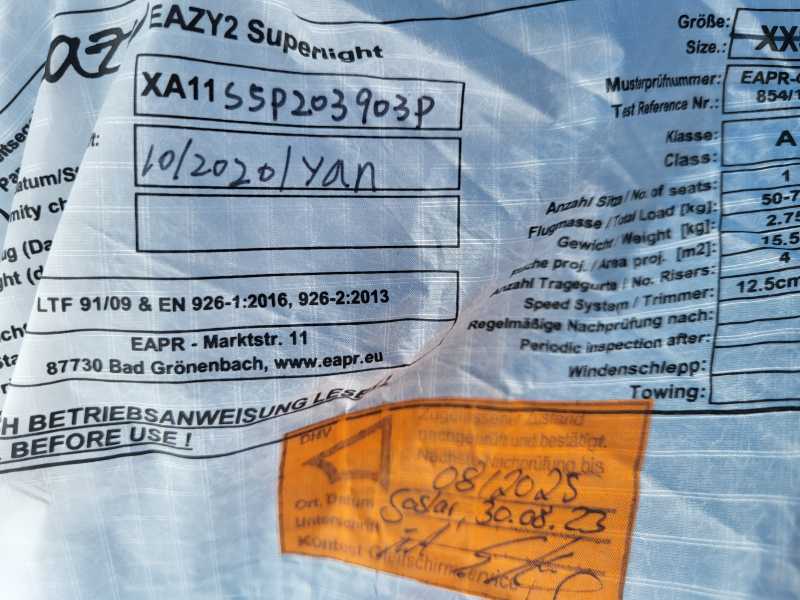 EAZY2 Superlight
XA11 S5P203903P
10/2020/Yan
LTF 91/09 & EN 926-1:2016, 926-2:2013
EAPR - Marktstr. 11
87730 Bad Grönenbach, www.eapr.eu
H BETRIEBSANWEISUNG LESE
BEFORE USE !
Größe:
Size.: XX
Musterprüfnummer: EAPR-
Test Reference Nr.: 854/1
Klasse: A
Class:
Anzahl Sitze / No. of seats: 1
Flugmasse / Total Load [kg]: 50-7
Gewicht / Weight [kg]: 2.75
proj. / Area proj. [m2]: 15.5
Anzahl Tragegurte / No. Risers: 4
Speed System / Trimmer: 12.5cm
Regelmäßige Nachprüfung nach:
Periodic inspection after:
Windenschlepp:
Towing:
DHV
Zugelassener Zustand
nachgeprüft und bestätigt.
Nächste Nachprüfung bis
08/2025
Ort, Datum Goslar, 30.08.23
Unterschrift
Kontest Gleitschirmservice